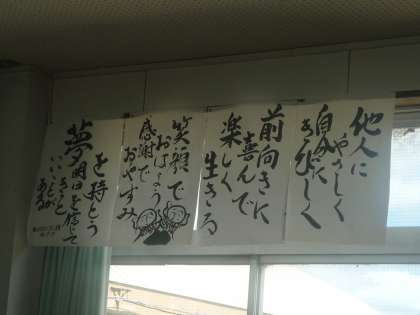 他人に
やさしく
自分に
きびしく
前向きに
喜んで
楽しく
生きる
笑顔で
おはよう
感謝で
おやすみ
夢
を持とう
明日を信じて
きっと
いいことが
ある